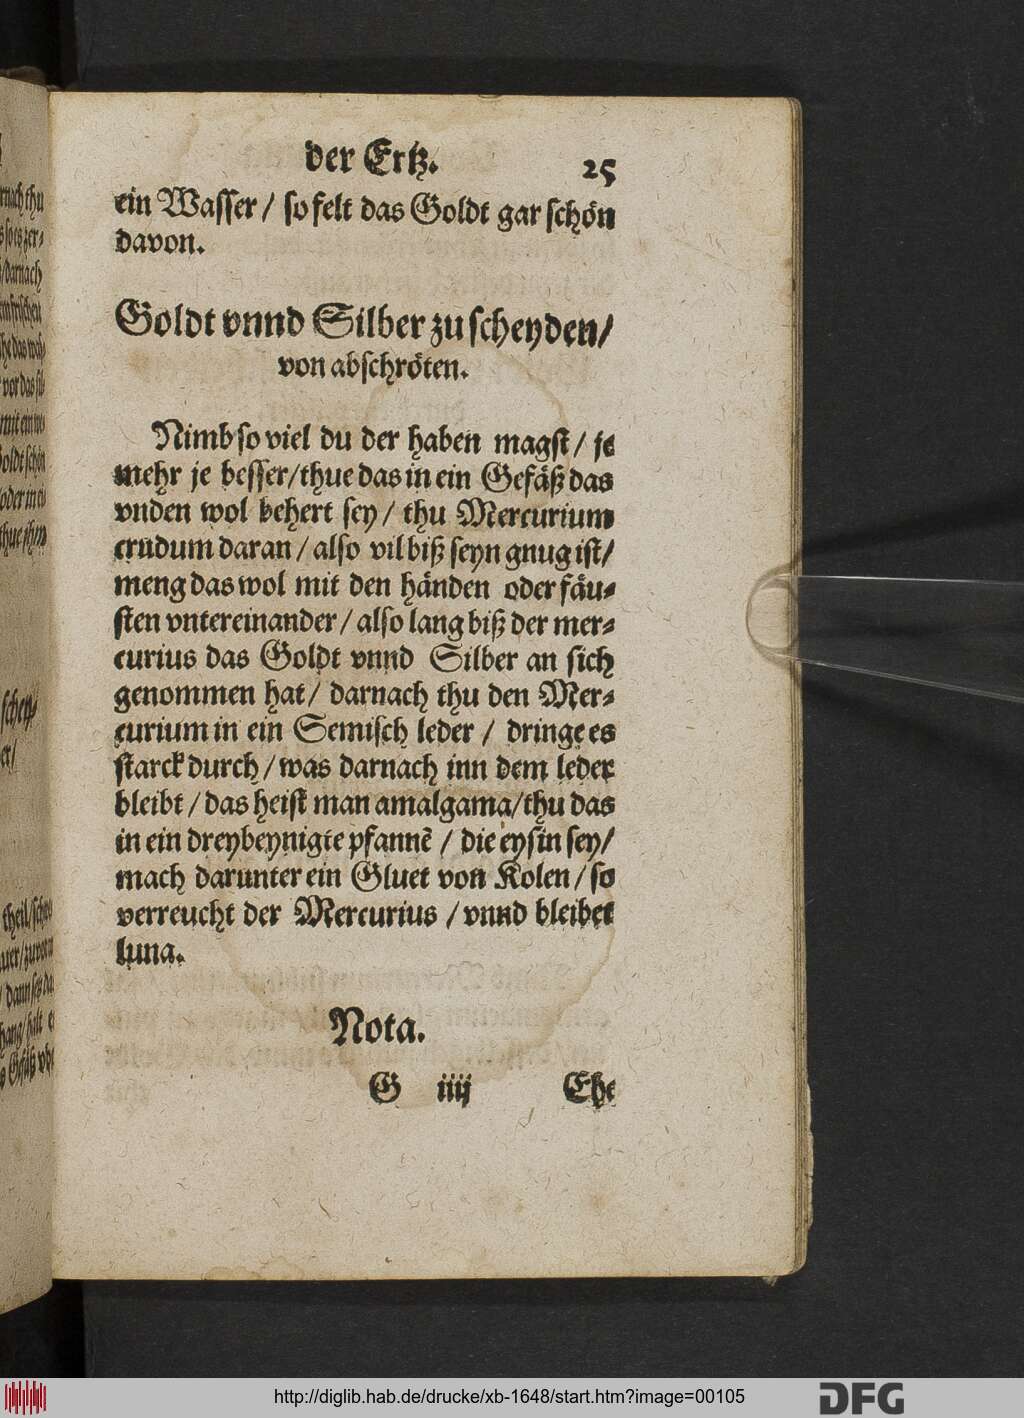 der Ertz. 25
ein Wasser / so felt das Goldt gar schön
davon.
Goldt vnnd Silber zu scheyden/
von abschröten.
Nimb so viel du der haben magst / je
mehr je besser/thue das in ein Gefäß das
vnden wol behert sey / thu Mercurium
crudum daran / also vil biß seyn gnug ist/
meng das wol mit den händen oder fäu-
sten vntereinander / also lang biß der mer-
curius das Goldt vnnd Silber an sich
genommen hat / darnach thu den Mer-
curium in ein Semisch leder / dringe es
starck durch / was darnach inn dem leder
bleibt / das heist man amalgama/thu das
in ein dreybeynigte pfannẽ / die eysin sey/
mach darunter ein Gluet von Kolen / so
verreucht der Mercurius / vnnd bleibet
luna.
Nota.
G iiij Ehe
http://diglib.hab.de/drucke/xb-1648/start.htm?image=00105
DFG